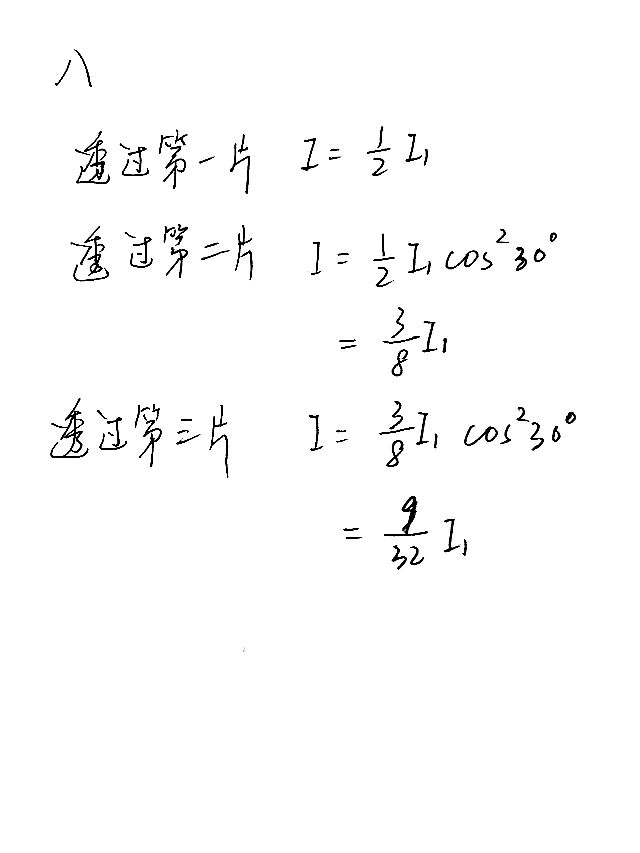 八
透过第一片 I = 1/2 I₁
透过第二片 I = 1/2 I₁ cos²30°
= 3/8 I₁
透过第三片 I = 3/8 I₁ cos²30°
= 9/32 I₁